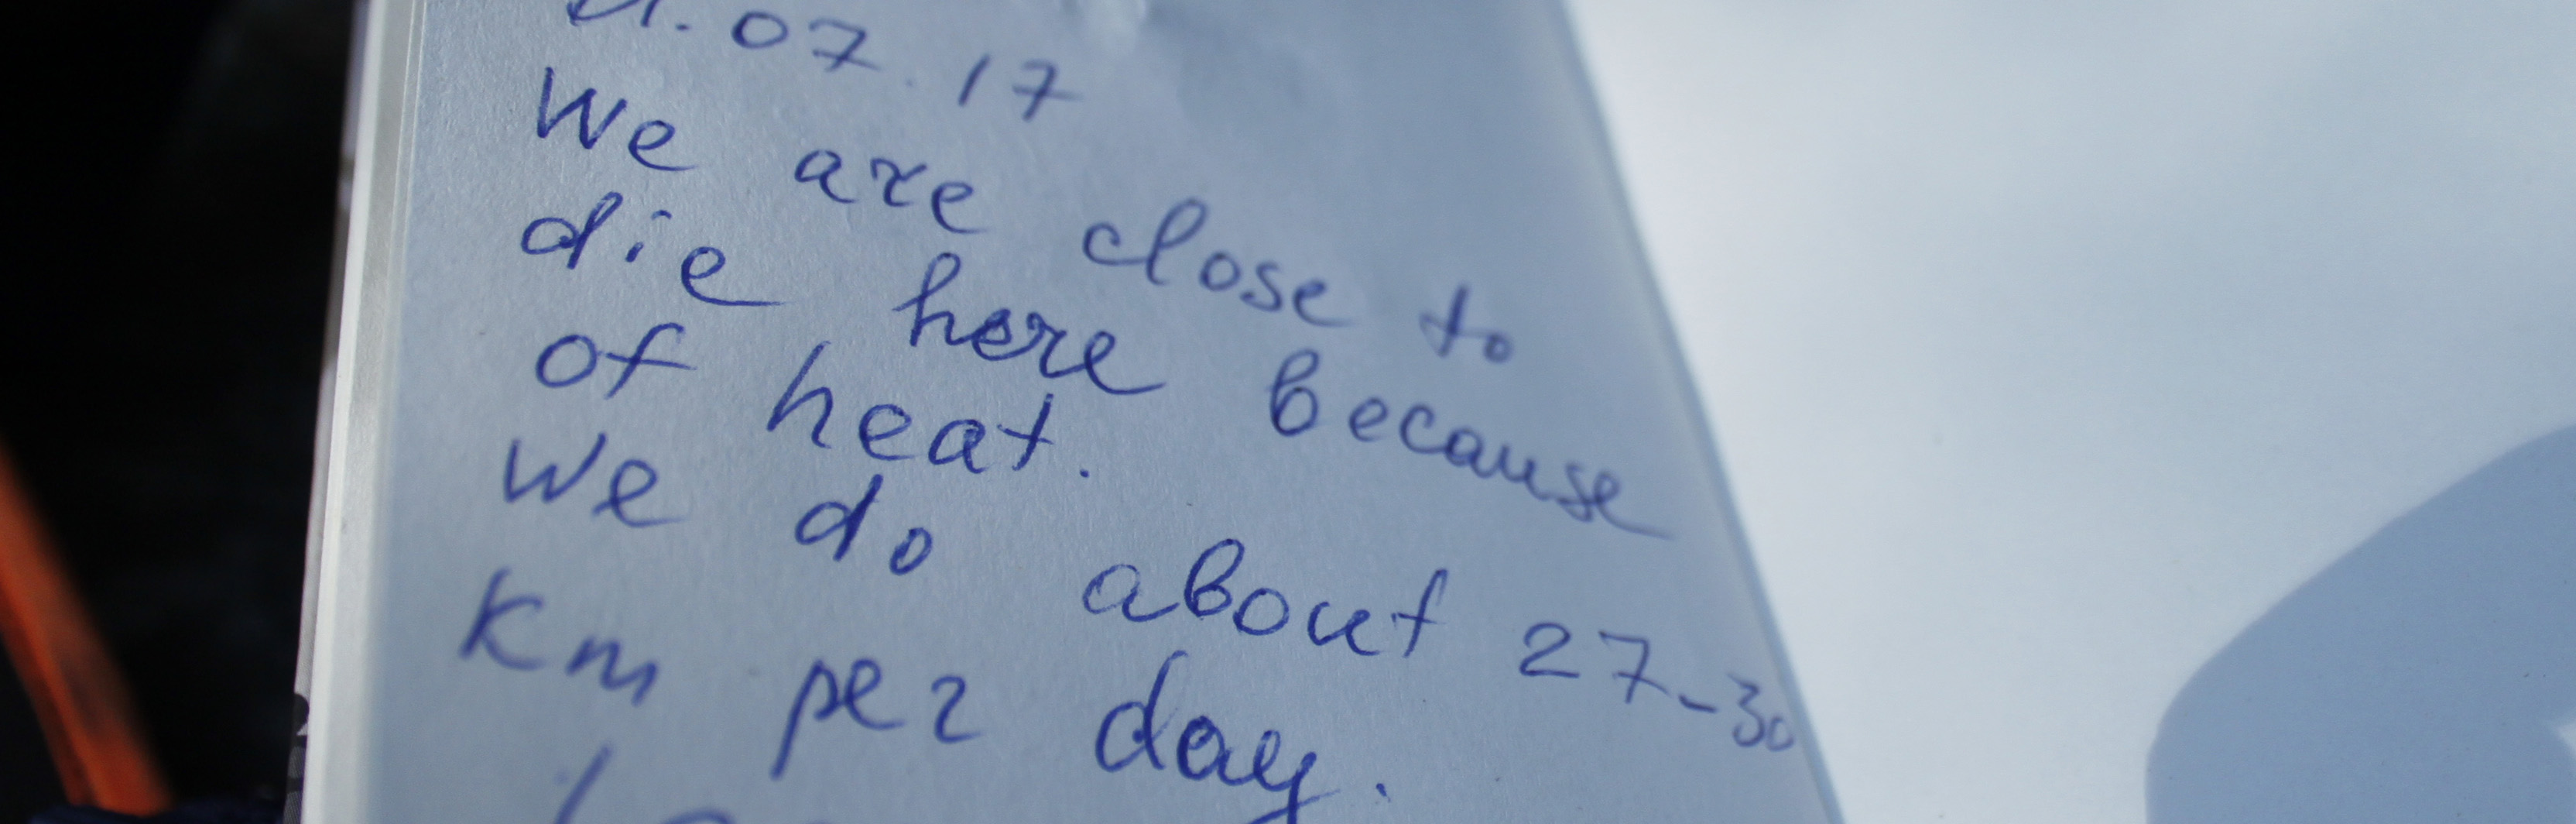 .07.17
We are close to
die here because
of heat.
We do about 27-30
km per day.